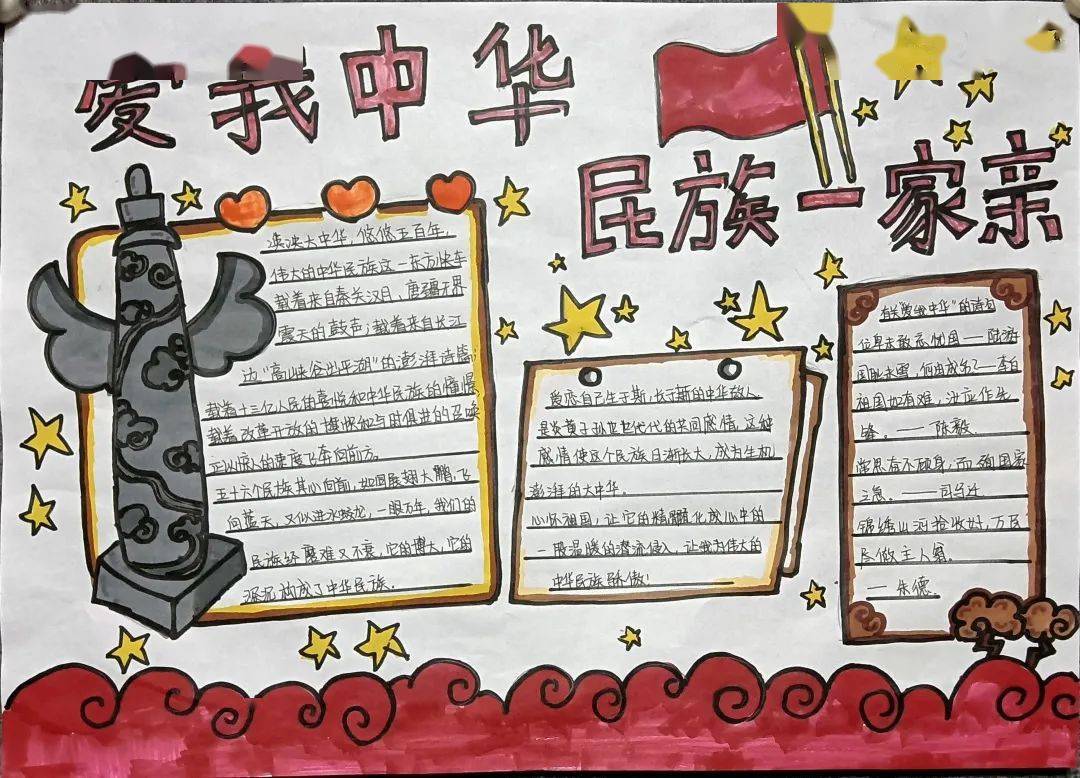 爱我中华
民族一家亲
泱泱大中华，悠悠五百年，
伟大的中华民族这一东方快车
载着来自秦关汉月、唐疆元界
震天的鼓声；载着来自长江
边"高峡谷出平湖"的澎湃诗意；
载着十三亿人民的喜悦和中华民族的憧憬
载着改革开放的雄威和与时俱进的召唤
正以惊人的速度飞奔向前方。
五十六个民族其心向前，如同展翅大鹏，飞
向蓝天，又似进水蛟龙，一眼万年，我们的
民族经磨难又不衰，它的博大，它的
深沉构成了中华民族。
自己生于斯，长于斯的中华故人
是炎黄子孙世世代代的共同感情，这种
感情使这个民族日渐长大，成为生机
澎湃的大中华。
心怀祖国，让它的精髓化成心中的
一股温暖的潜流侵入，让我为伟大的
中华民族骄傲！
有关"爱我中华"的诗句
位卑未敢忘忧国——陆游
国耻未雪，何由成名？——李白
祖国如有难，汝应作先
锋。——陈毅
常思奋不顾身，而殉国家
之急。——司马迁
锦绣山河收拾好，万民
尽做主人翁。
——朱德。